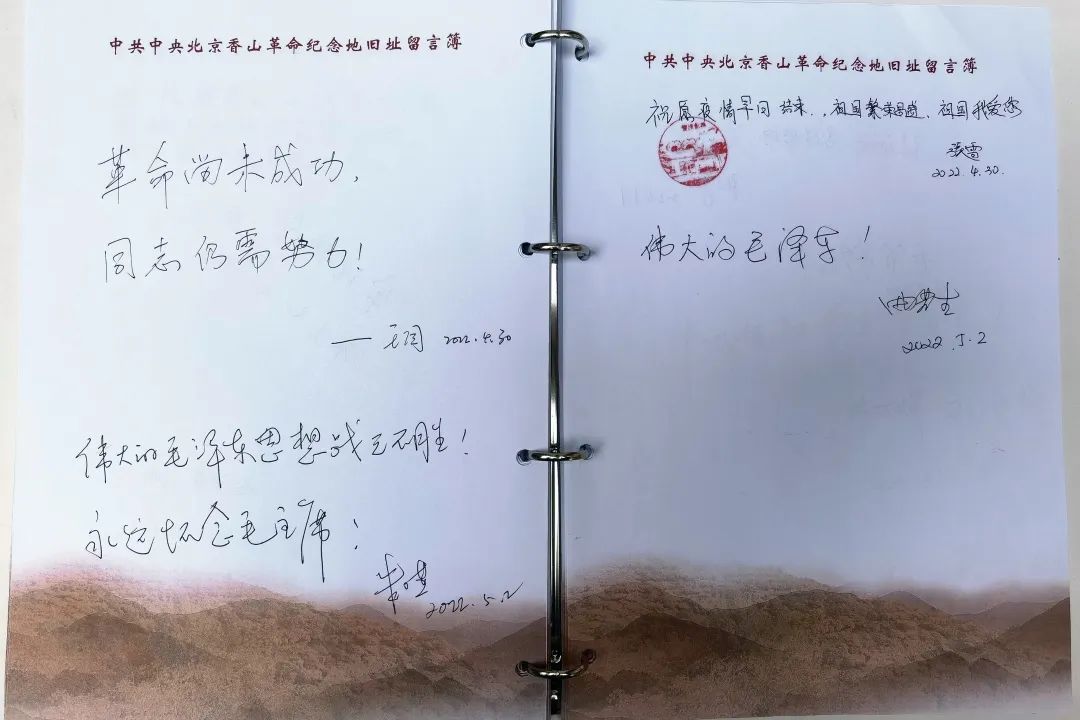 中共中央北京香山革命纪念地旧址留言簿
革命尚未成功，
同志仍需努力！
2022.4.30
伟大的毛泽东思想战无不胜！
永远怀念毛主席！
2022.5.2
中共中央北京香山革命纪念地旧址留言簿
祝愿疫情早日结束，祖国繁荣昌盛、祖国我爱你
张雪
2022.4.30.
伟大的毛泽东！
2022.5.2